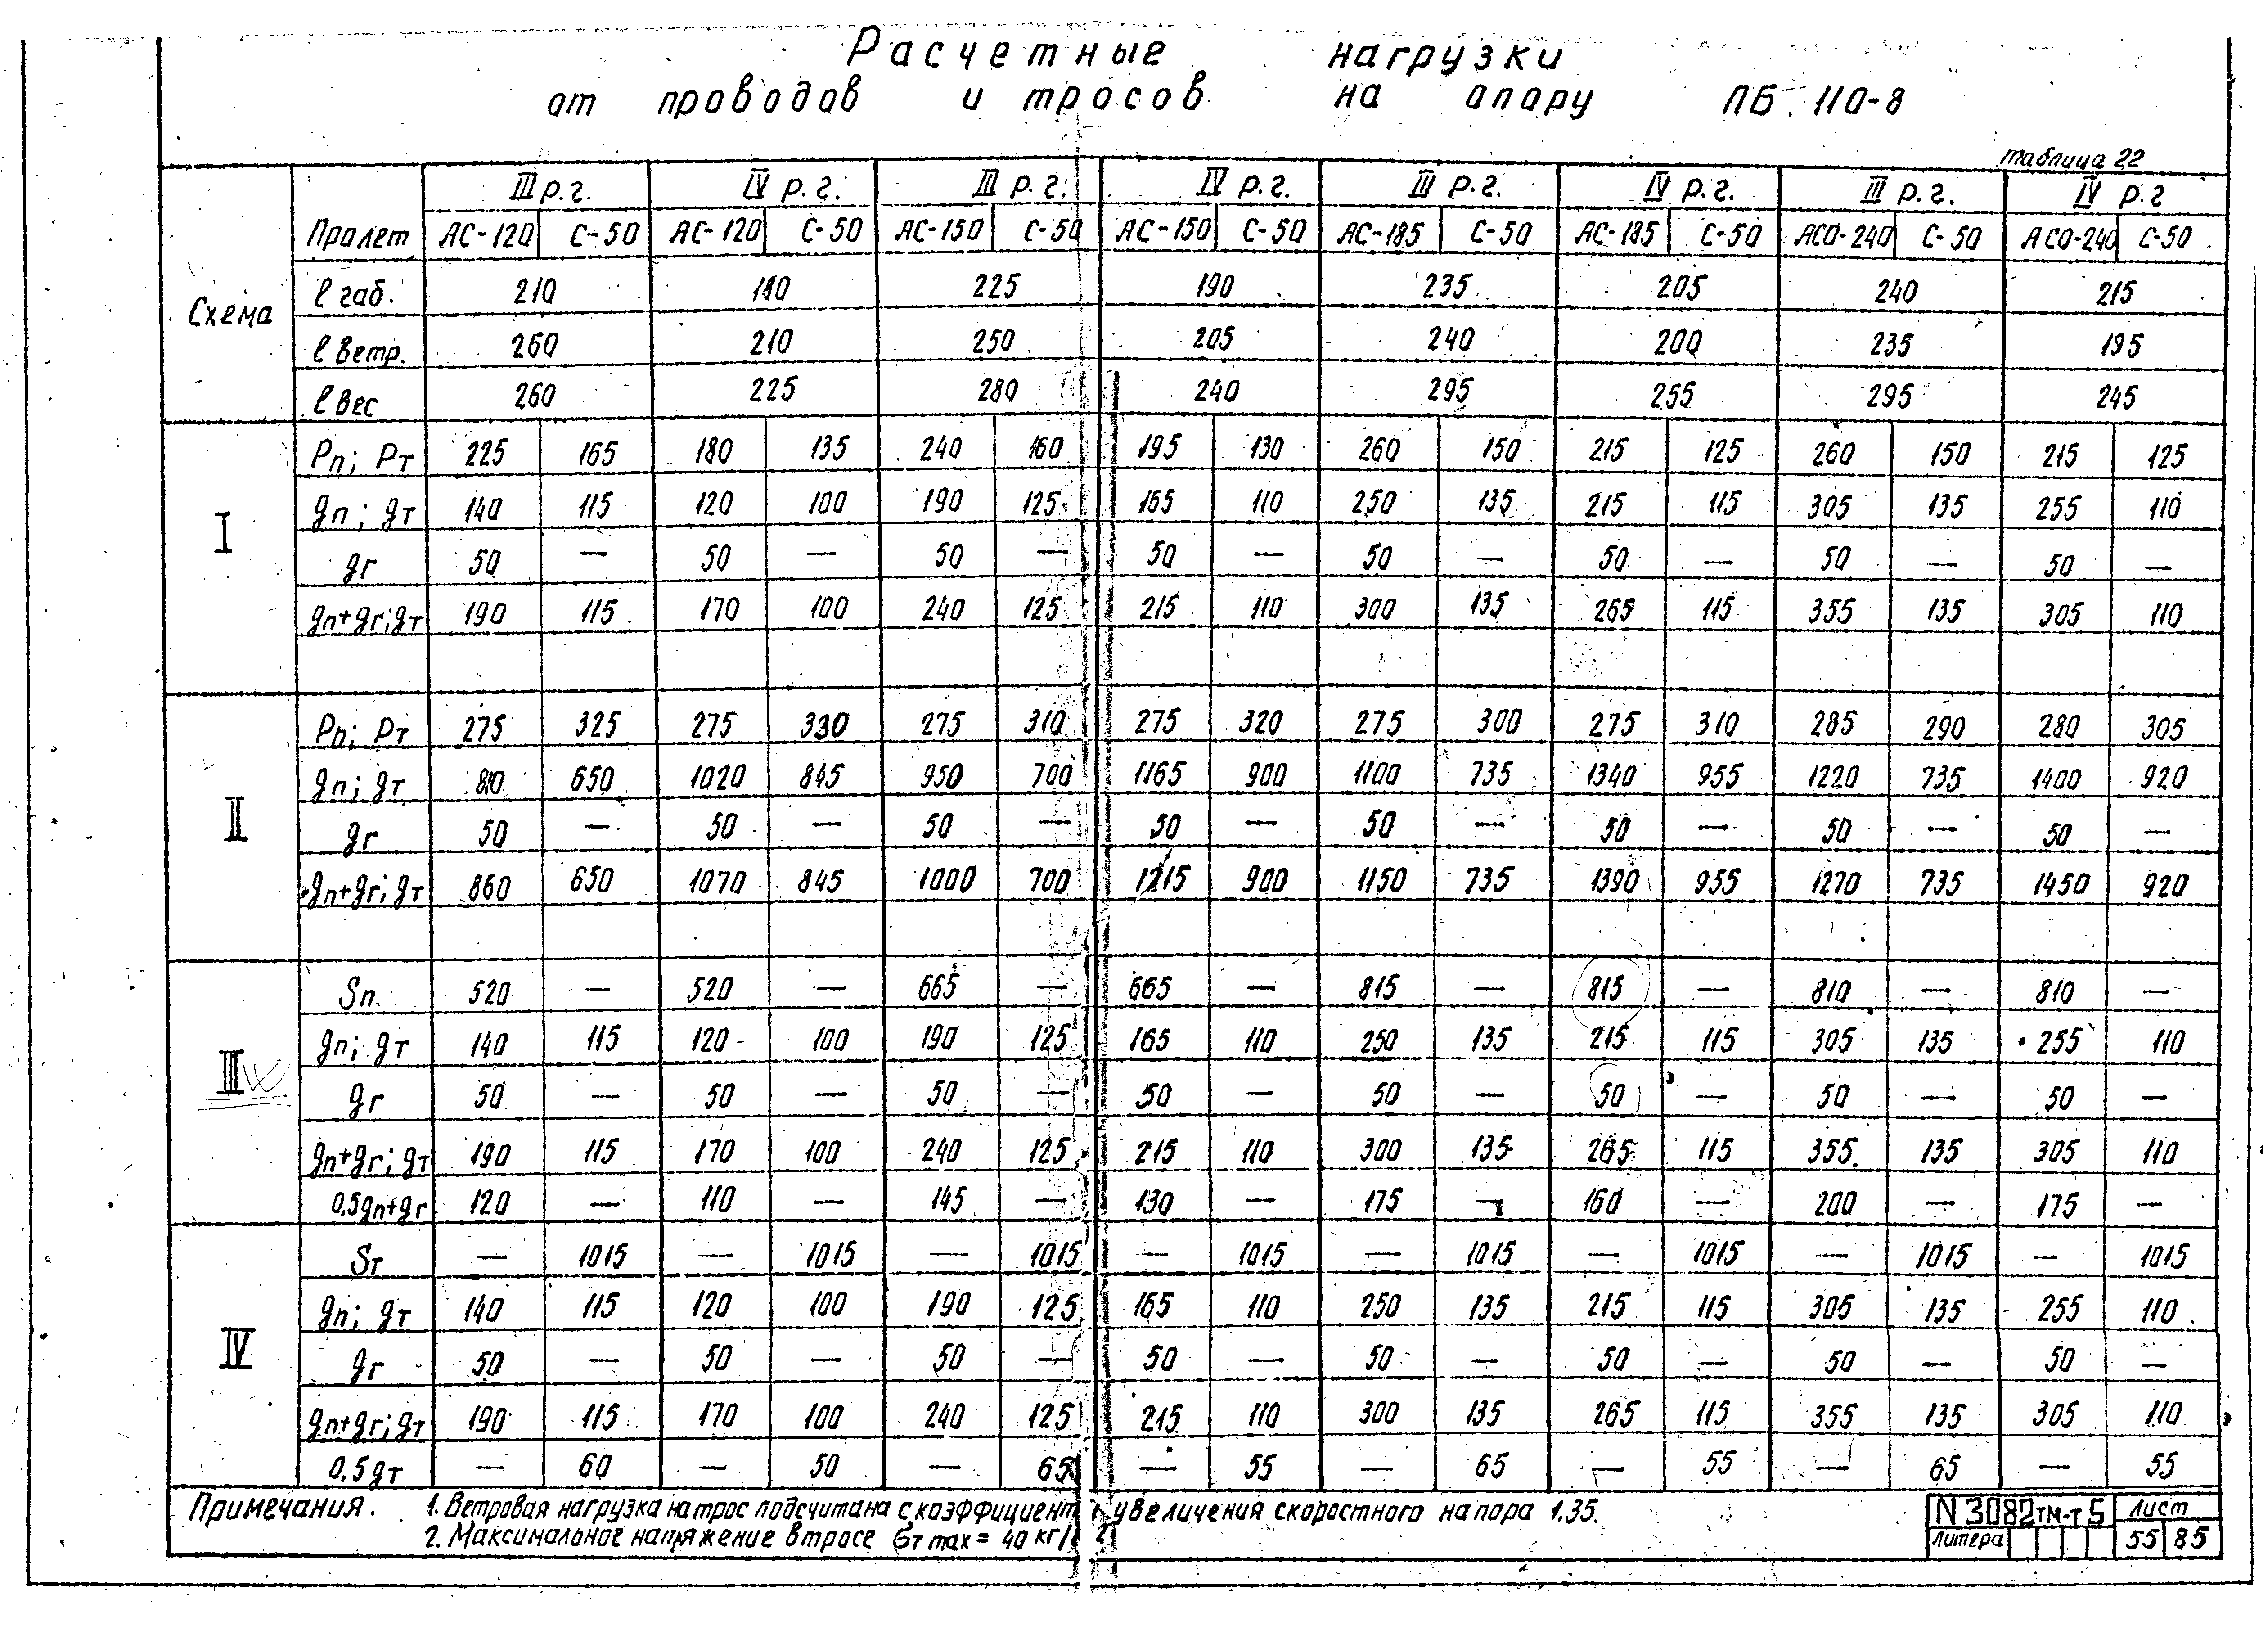 Расчетные нагрузки
от проводов и тросов на опору ПБ 110-8
таблица 22
Схема Пролет III р.г. IV р.г. III р.г. IV р.г. III р.г. IV р.г. III р.г. IV р.г
АС-120 С-50 АС-120 С-50 АС-150 С-50 АС-150 С-50 АС-185 С-50 АС-185 С-50 АСО-240 С-50 АСО-240 С-50
l габ. 210 180 225 190 235 205 240 215
l ветр. 260 210 250 205 240 200 235 195
l вес 260 225 280 240 295 255 295 245
I
Pп; Pт 225 165 180 135 240 160 195 130 260 150 215 125 260 150 215 125
gп; gт 140 115 120 100 190 125 165 110 250 135 215 115 305 135 255 110
gг 50 — 50 — 50 — 50 — 50 — 50 — 50 — 50 —
gп+gг; gт 190 115 170 100 240 125 215 110 300 135 265 115 355 135 305 110
II
Pп; Pт 275 325 275 330 275 310 275 320 275 300 275 310 285 290 280 305
gп; gт 810 650 1020 845 950 700 1165 900 1100 735 1340 955 1220 735 1400 920
gг 50 — 50 — 50 — 50 — 50 — 50 — 50 — 50 —
gп+gг; gт 860 650 1070 845 1000 700 1215 900 1150 735 1390 955 1270 735 1450 920
III
Sп. 520 — 520 — 665 — 665 — 815 — 815 — 810 — 810 —
gп; gт 140 115 120 100 190 125 165 110 250 135 215 115 305 135 255 110
gг 50 — 50 — 50 — 50 — 50 — 50 — 50 — 50 —
gп+gг; gт 190 115 170 100 240 125 215 110 300 135 265 115 355 135 305 110
0,5gп+gг 120 — 110 — 145 — 130 — 175 — 160 — 200 — 175 —
IV
Sт — 1015 — 1015 — 1015 — 1015 — 1015 — 1015 — 1015 — 1015
gп; gт 140 115 120 100 190 125 165 110 250 135 215 115 305 135 255 110
gг 50 — 50 — 50 — 50 — 50 — 50 — 50 — 50 —
gп+gг; gт 190 115 170 100 240 125 215 110 300 135 265 115 355 135 305 110
0,5gт — 60 — 50 — 65 — 55 — 65 — 55 — 65 — 55
Примечания. 1. Ветровая нагрузка на трос подсчитана с коэффициент увеличения скоростного напора 1,35.
2. Максимальное напряжение в тросе σт max = 40 кг/ 2
N 3082тм-т5 лист
литера 55 85